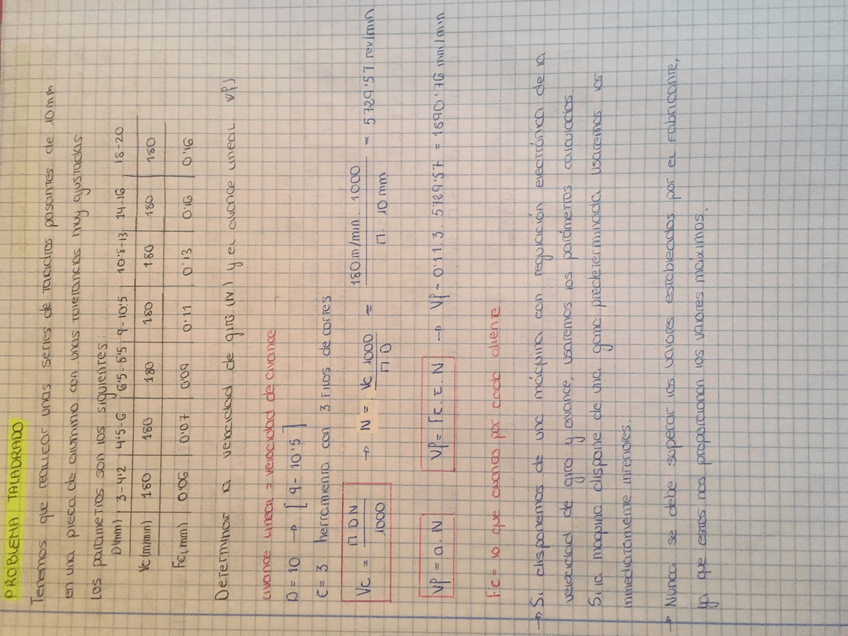 PROBLEMA TALADRADO
Tenemos que realizar unas series de taladros pasantes de 10mm
en una pieza de aluminio con unas tolerancias muy ajustadas
Los parametros son los siguientes:
D(mm) 3-4'2 4'5-6 6'5-8'5 9-10'5 10'8-13 14-16 18-20
Vc(m/min) 180 180 180 180 180 180 180
Fc(mm) 0'06 0'07 0'09 0'11 0'13 0'16 0'16
Determinar a velocidad de giro (N) y el avance lineal VP)
avance lineal = velocidad de avance
D=10 → [9-10'5]
C=3 herramienta con 3 filos de cortes
Vc = Π D N / 1000 → N = Vc 1000 / Π D = 180 m/min. 1000 / Π. 10 mm = 5729'57 rev/min
VP = a. N VP = Fc. z. N → VP = 0'11 3. 5729'57 = 1890'76 mm/min
Fc = lo que avanza por cada diente
→ Si disponemos de una máquina con regulación electrónica de la
velocidad de giro y avance, usaremos los parámetros calculados
Si la maquina dispone de una gama predeterminada usaremos los
inmediatamente inferiores.
→ Nunca se debe superar los valores establecidos por el fabricante,
ya que estos nos proporcionan los valores máximos.